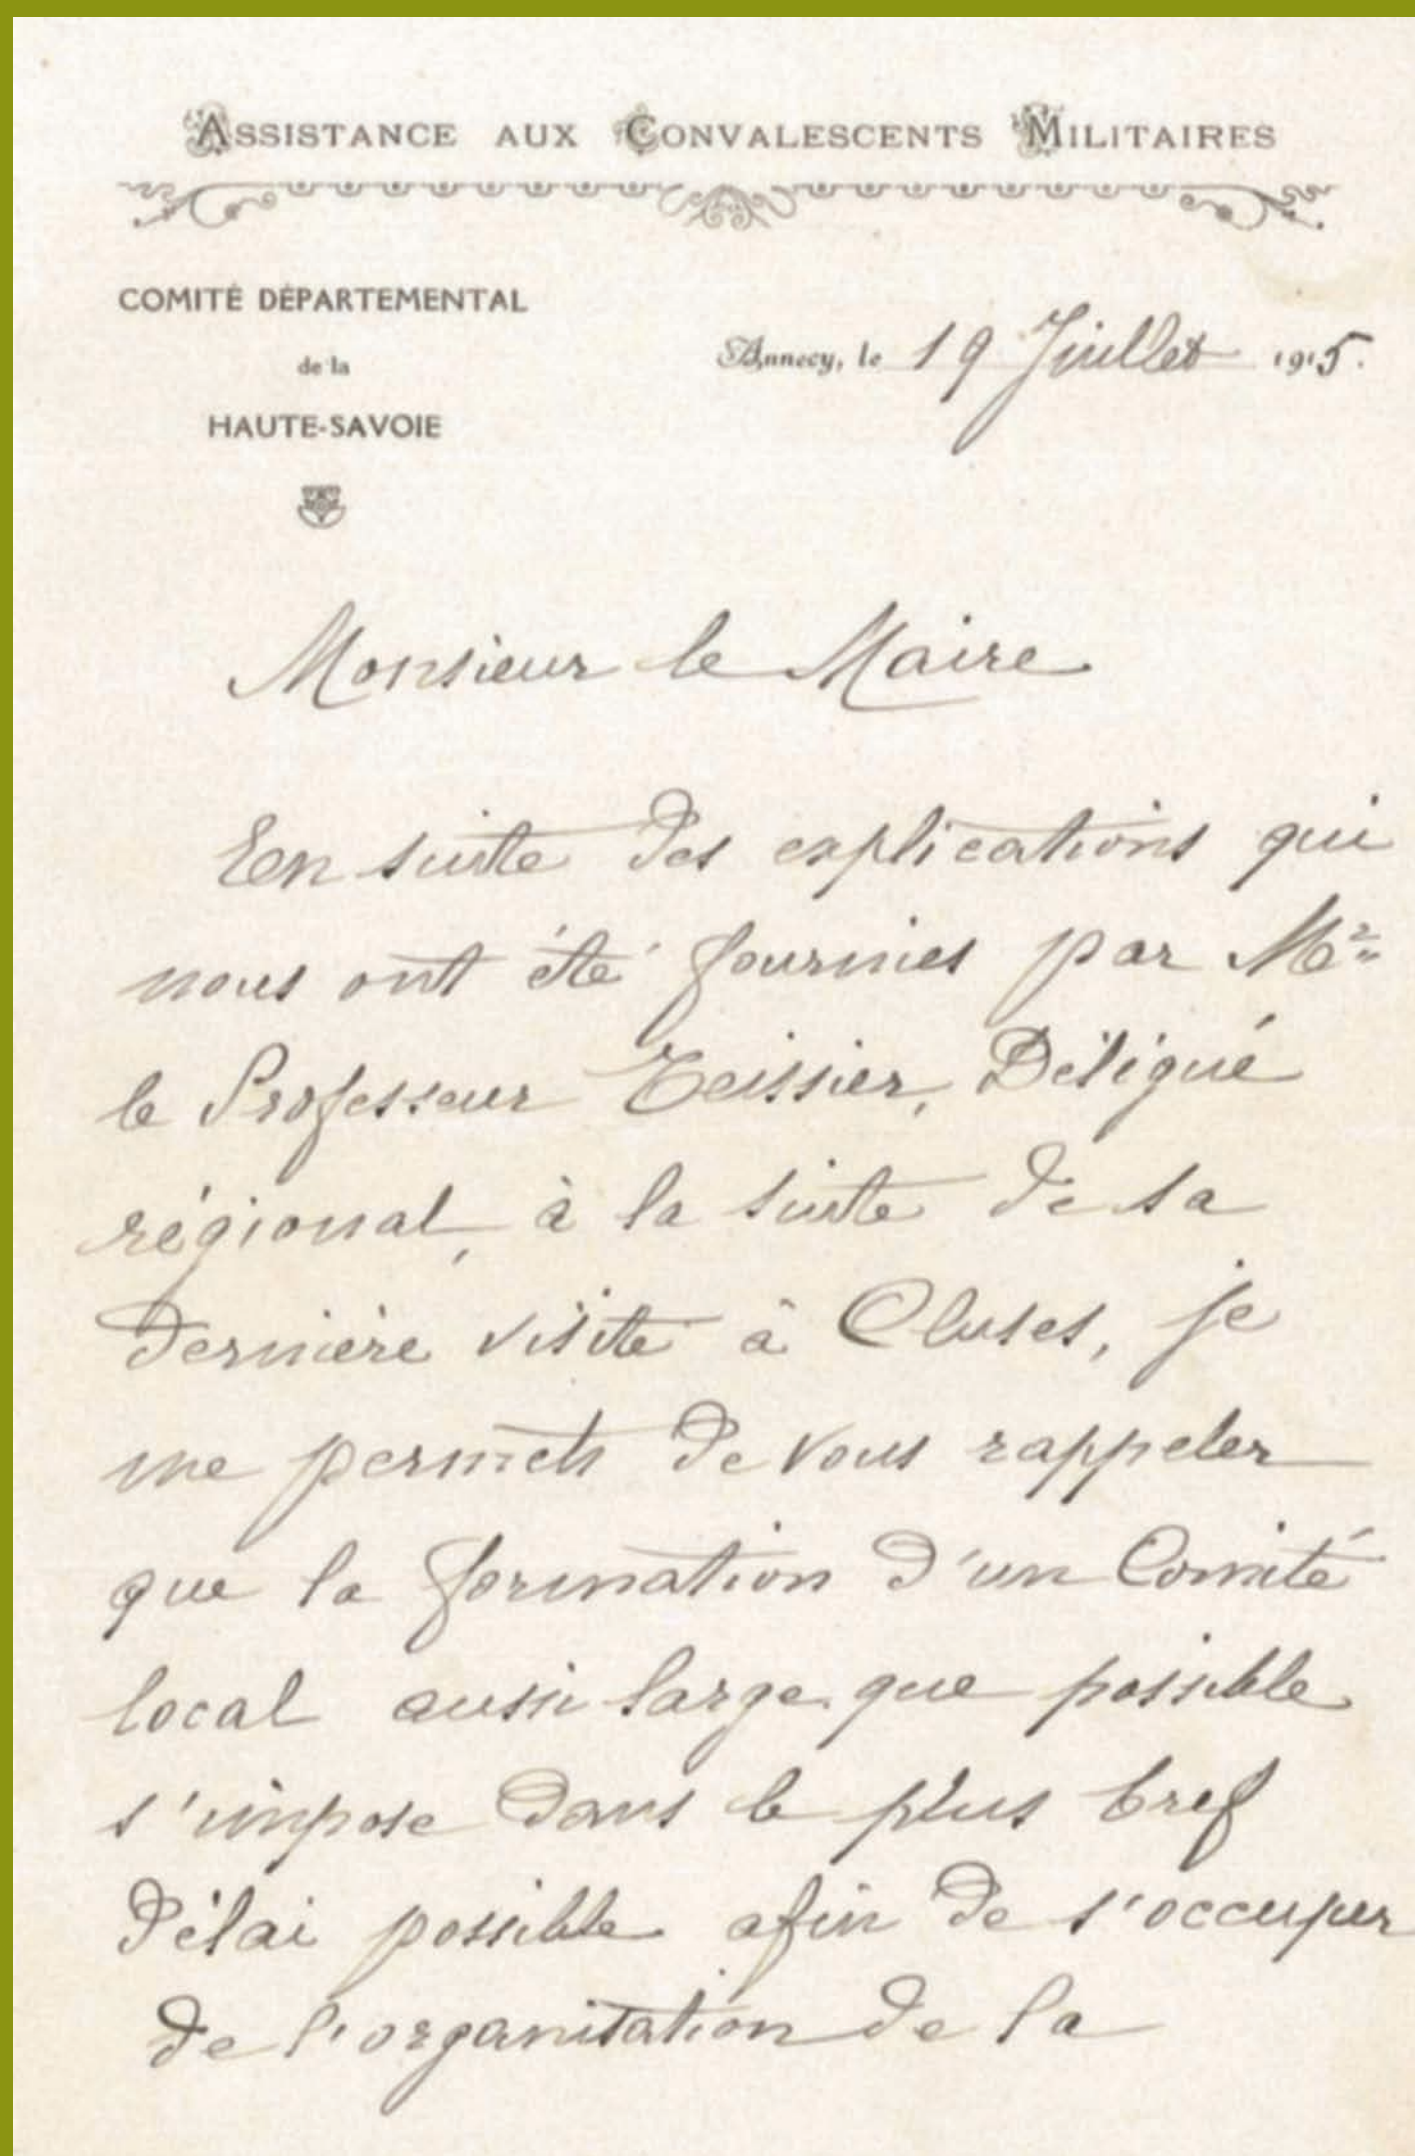 ASSISTANCE AUX CONVALESCENTS MILITAIRES
COMITÉ DÉPARTEMENTAL
de la
HAUTE-SAVOIE
Annecy, le 19 Juillet 1915.
Monsieur le Maire
En suite des explications qui
nous ont été fournies par Mr
le Professeur Teissier, Délégué
régional, à la suite de sa
dernière visite à Cluses, je
me permets de vous rappeler
que la formation d'un Comité
local aussi large que possible
s'impose dans le plus bref
délai possible afin de s'occuper
de l'organisation de la